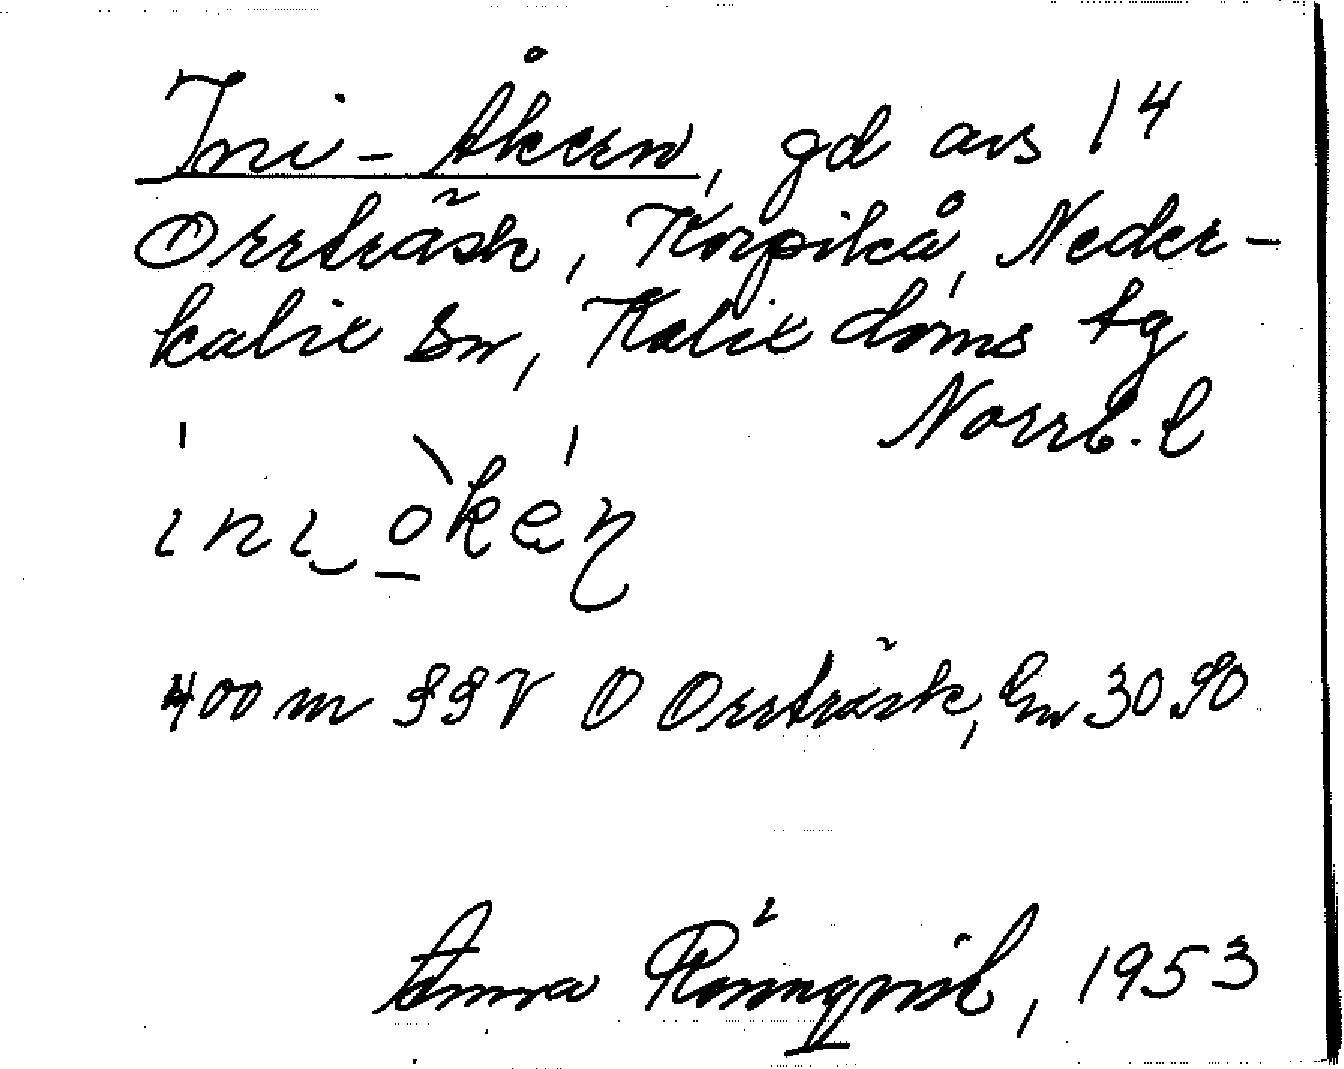 Ini-Åkern, gd avs 14
Orrträsk, Korpikå, Neder-
kalix sn, Kalix doms tg
Norrb. l
ini ̮ o̠ken
400 m SSV O Orrträsk, Ew 30.90
Anna Rönnqvist, 1953